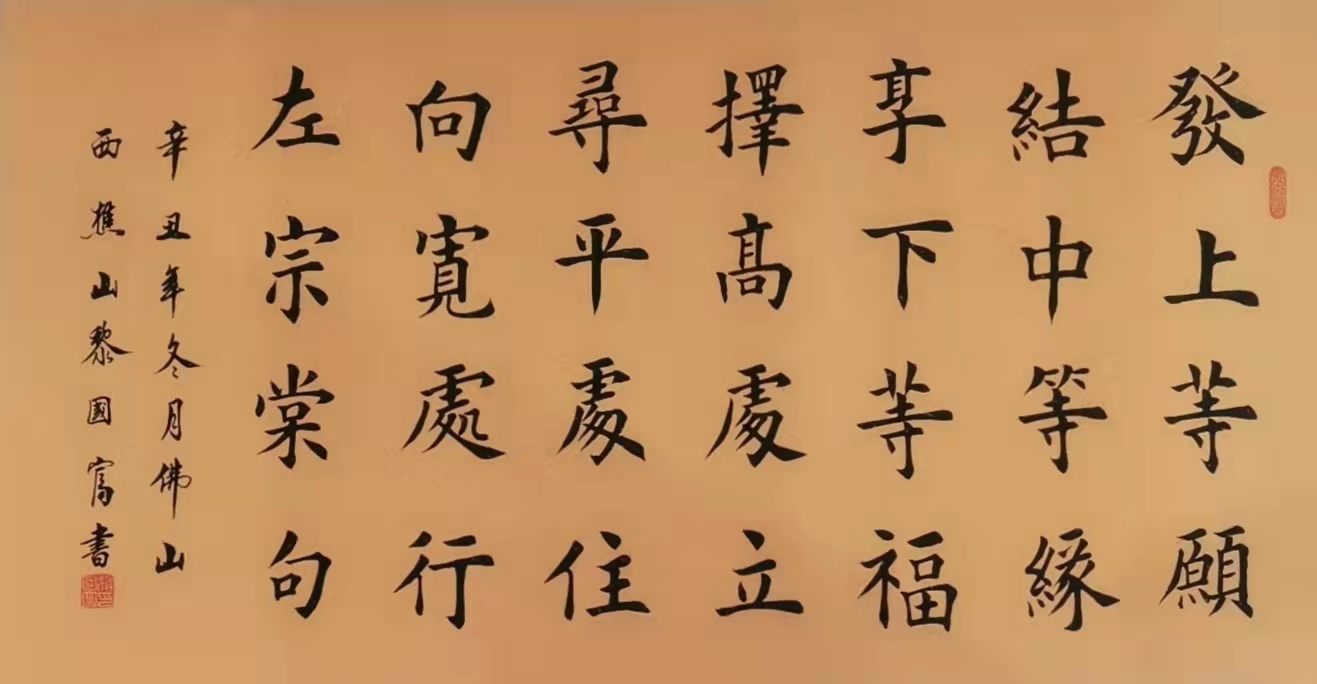 發上等願
結中等緣
享下等福
擇高處立
尋平處住
向寬處行
左宗棠句
辛丑年冬月佛山
西樵山黎國富書